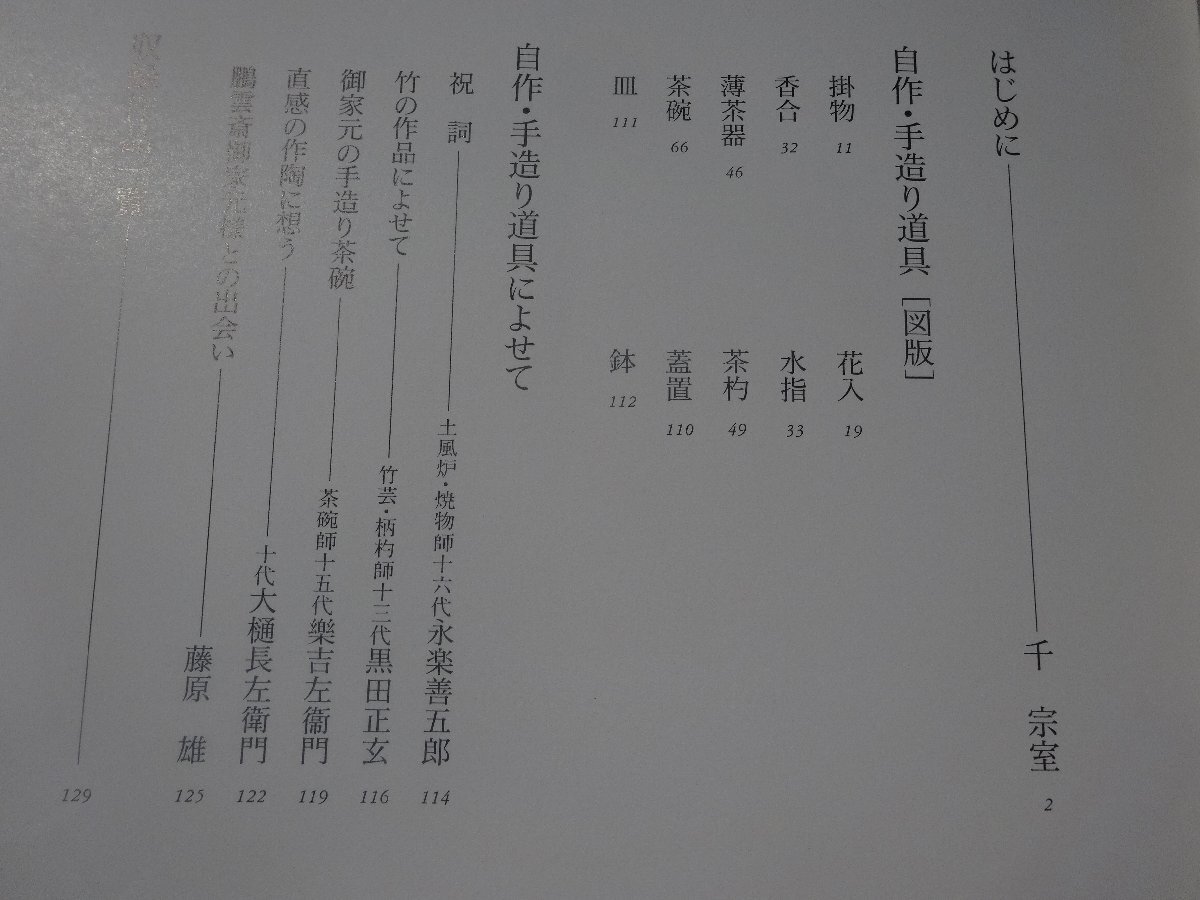 はじめに 千 宗室 2
自作・手造り道具［図版］
掛物 11 花入 19
香合 32 水指 33
薄茶器 46 茶杓 49
茶碗 66 蓋置 110
皿 111 鉢 112
自作・手造り道具によせて
祝 詞 土風炉・焼物師十六代永楽善五郎 114
竹の作品によせて 竹芸・柄杓師十三代黒田正玄 116
御家元の手造り茶碗 茶碗師十五代樂吉左衞門 119
直感の作陶に想う 十代大樋長左衛門 122
鵬雲斎御家元様との出会い 藤原 雄 125
129